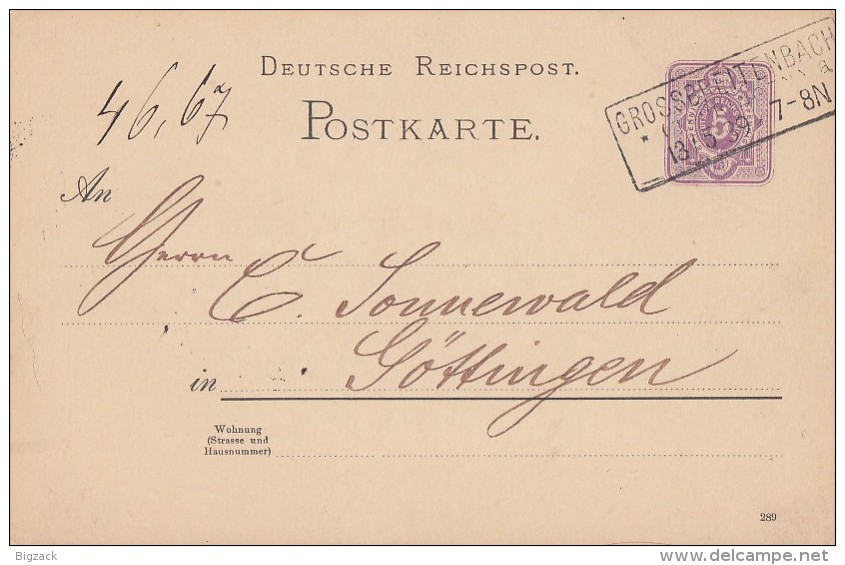 46,67
DEUTSCHE REICHSPOST.
POSTKARTE.
GROSSBREITENBACH
7-8N
5
An
Herrn
C. Sonnewald
in Göttingen
Wohnung
(Strasse und
Hausnummer)
289
Bigzack
delcampe.net